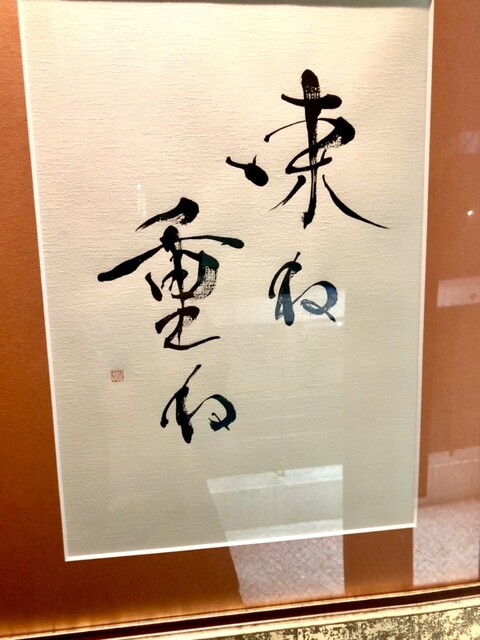 束ね
重ね